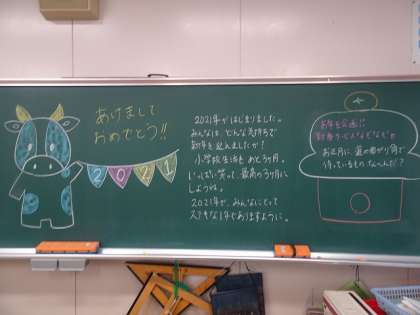 あけまして
おめでとう!!
2021
2021年がはじまりました。
みんなは、どんな気持ちで
新年を迎えましたか?
小学校生活もあと3ヶ月。
いっぱい笑って、最高の3ヶ月に
しようね。
2021年が、みんなにとって
ステキな1年でありますように。
お正月に、道の曲がり角で
待っているものなんだ?